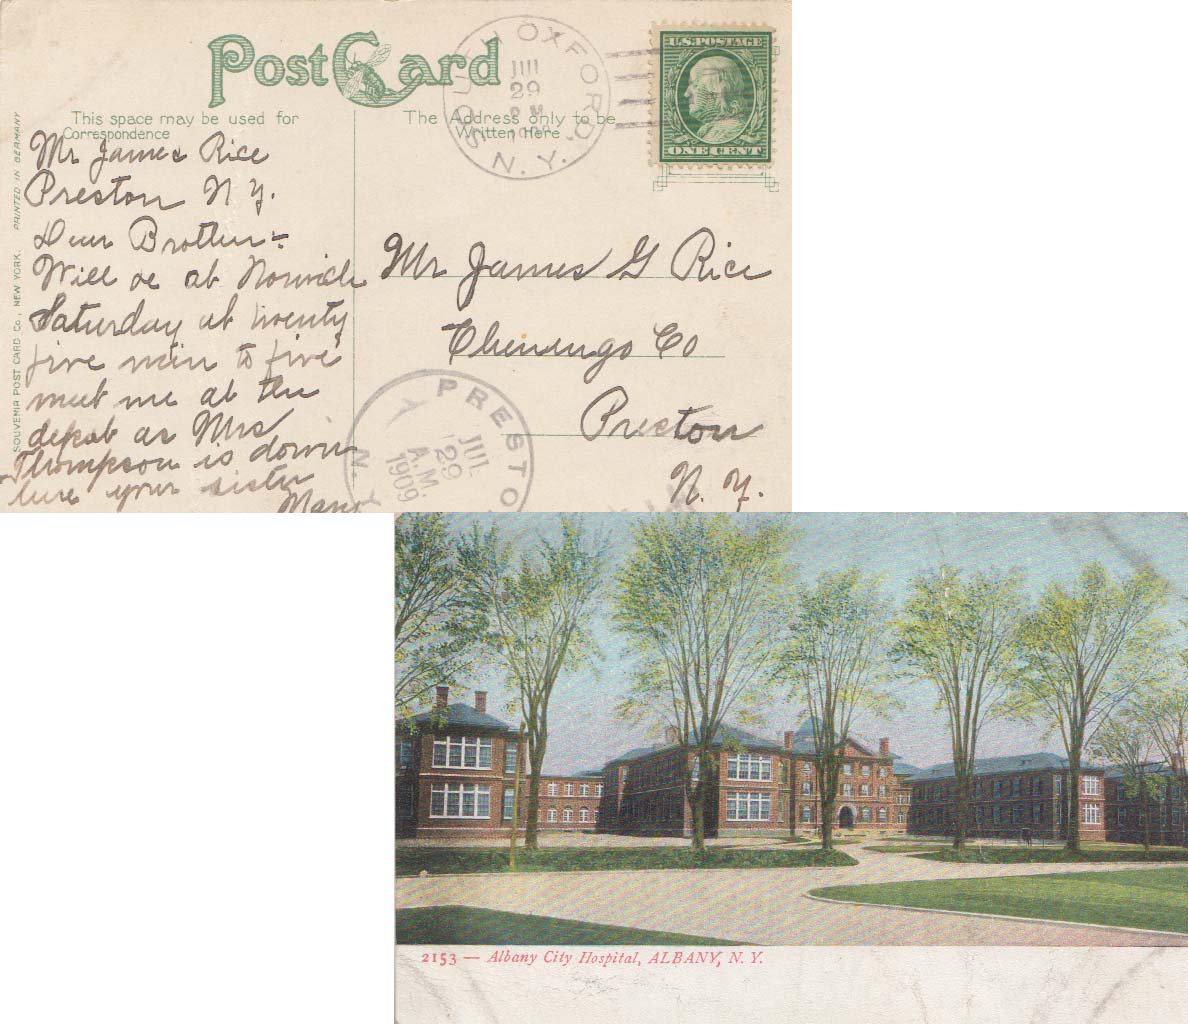 Post Card
SOUTH OXFORD, N. Y.
JUL
29
1909
U.S. POSTAGE
ONE CENT
This space may be used for
Correspondence
The Address only to be
Written Here
SOUVENIR POST CARD Co., NEW YORK. PRINTED IN GERMANY
Mr James Rice
Preston N Y.
Dear Brother:-
Will be at Norwich
Saturday at twenty
five min to five
meet me at the
depot as Mrs
Thompson is down
here your sister
Mary
Mr James G Rice
Chenengo Co
Preston
N. Y.
PRESTO
N. Y.
JUL
29
A.M.
1909
2153 — Albany City Hospital, ALBANY, N. Y.